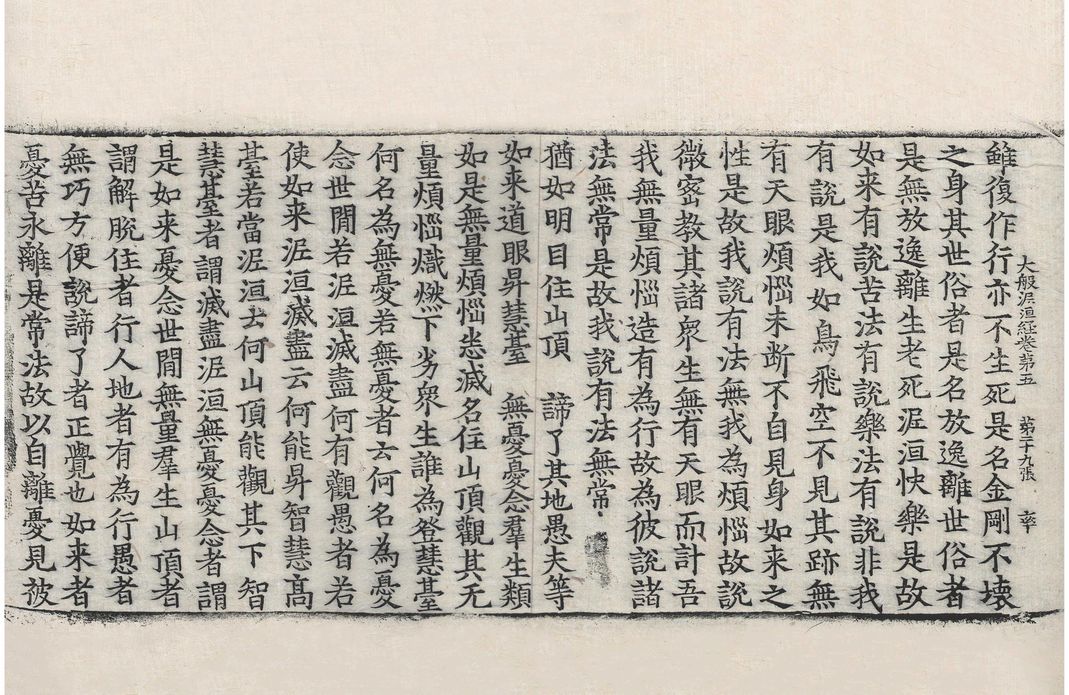 大般泥洹経卷第五 苐二十九張 率
雖復作行亦不生死是名金剛不壞
之身其世俗者是名放逸離世俗者
是無放逸離生老死泥洹快樂是故
如来有說苦法有說樂法有說非我
有說是我如鳥飛空不見其跡無
有天眼煩惱未断不自見身如来之
性是故我說有法無我為煩惱故說
微宻教其諸衆生無有天眼而計吾
我無量煩惱造有為行故為彼說諸
法無常是故我說有法無常
猶如明目住山頂 諦了其地愚夫等
如来道眼昇慧臺 無憂憂念羣生類
如是無量煩惱悉滅名住山頂觀其无
量煩惱熾燃下劣衆生誰為登慧臺
何名為無憂若無憂者云何名為憂
念世閒若泥洹滅盡何有觀愚者若
使如来泥洹滅盡云何能昇智慧高
臺若當泥洹云何山頂能觀其下智
慧臺者謂滅盡泥洹無憂憂念者謂
是如来憂念世閒無量羣生山頂者
謂解脫住者行人地者有為行愚者
無巧方便說諦了者正覺也如来者
憂苦永離是常法故以自離憂見彼